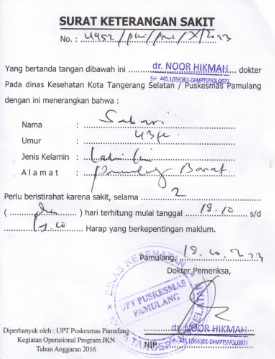 SURAT KETERANGAN SAKIT
No. :
Yang bertanda tangan dibawah ini dr. NOOR HIKMAH dokter
Pada dinas Kesehatan Kota Tangerang Selatan / Puskesmas Pamulang
dengan ini menerangkan bahwa :
Nama :
Umur :
Jenis Kelamin :
Alamat : Pamulang Barat
Perlu beristirahat karena sakit, selama 2
( dua ) hari terhitung mulai tanggal 18.10 s/d
Harap yang berkepentingan maklum.
Pamulang,
Dokter Pemeriksa,
DINAS KESEHATAN
UPT PUSKESMAS
PAMULANG
dr. NOOR HIKMAH
NIP
Diperbanyak oleh : UPT Puskesmas Pamulang
Kegiatan Operasional Program JKN
Tahun Anggaran 2016